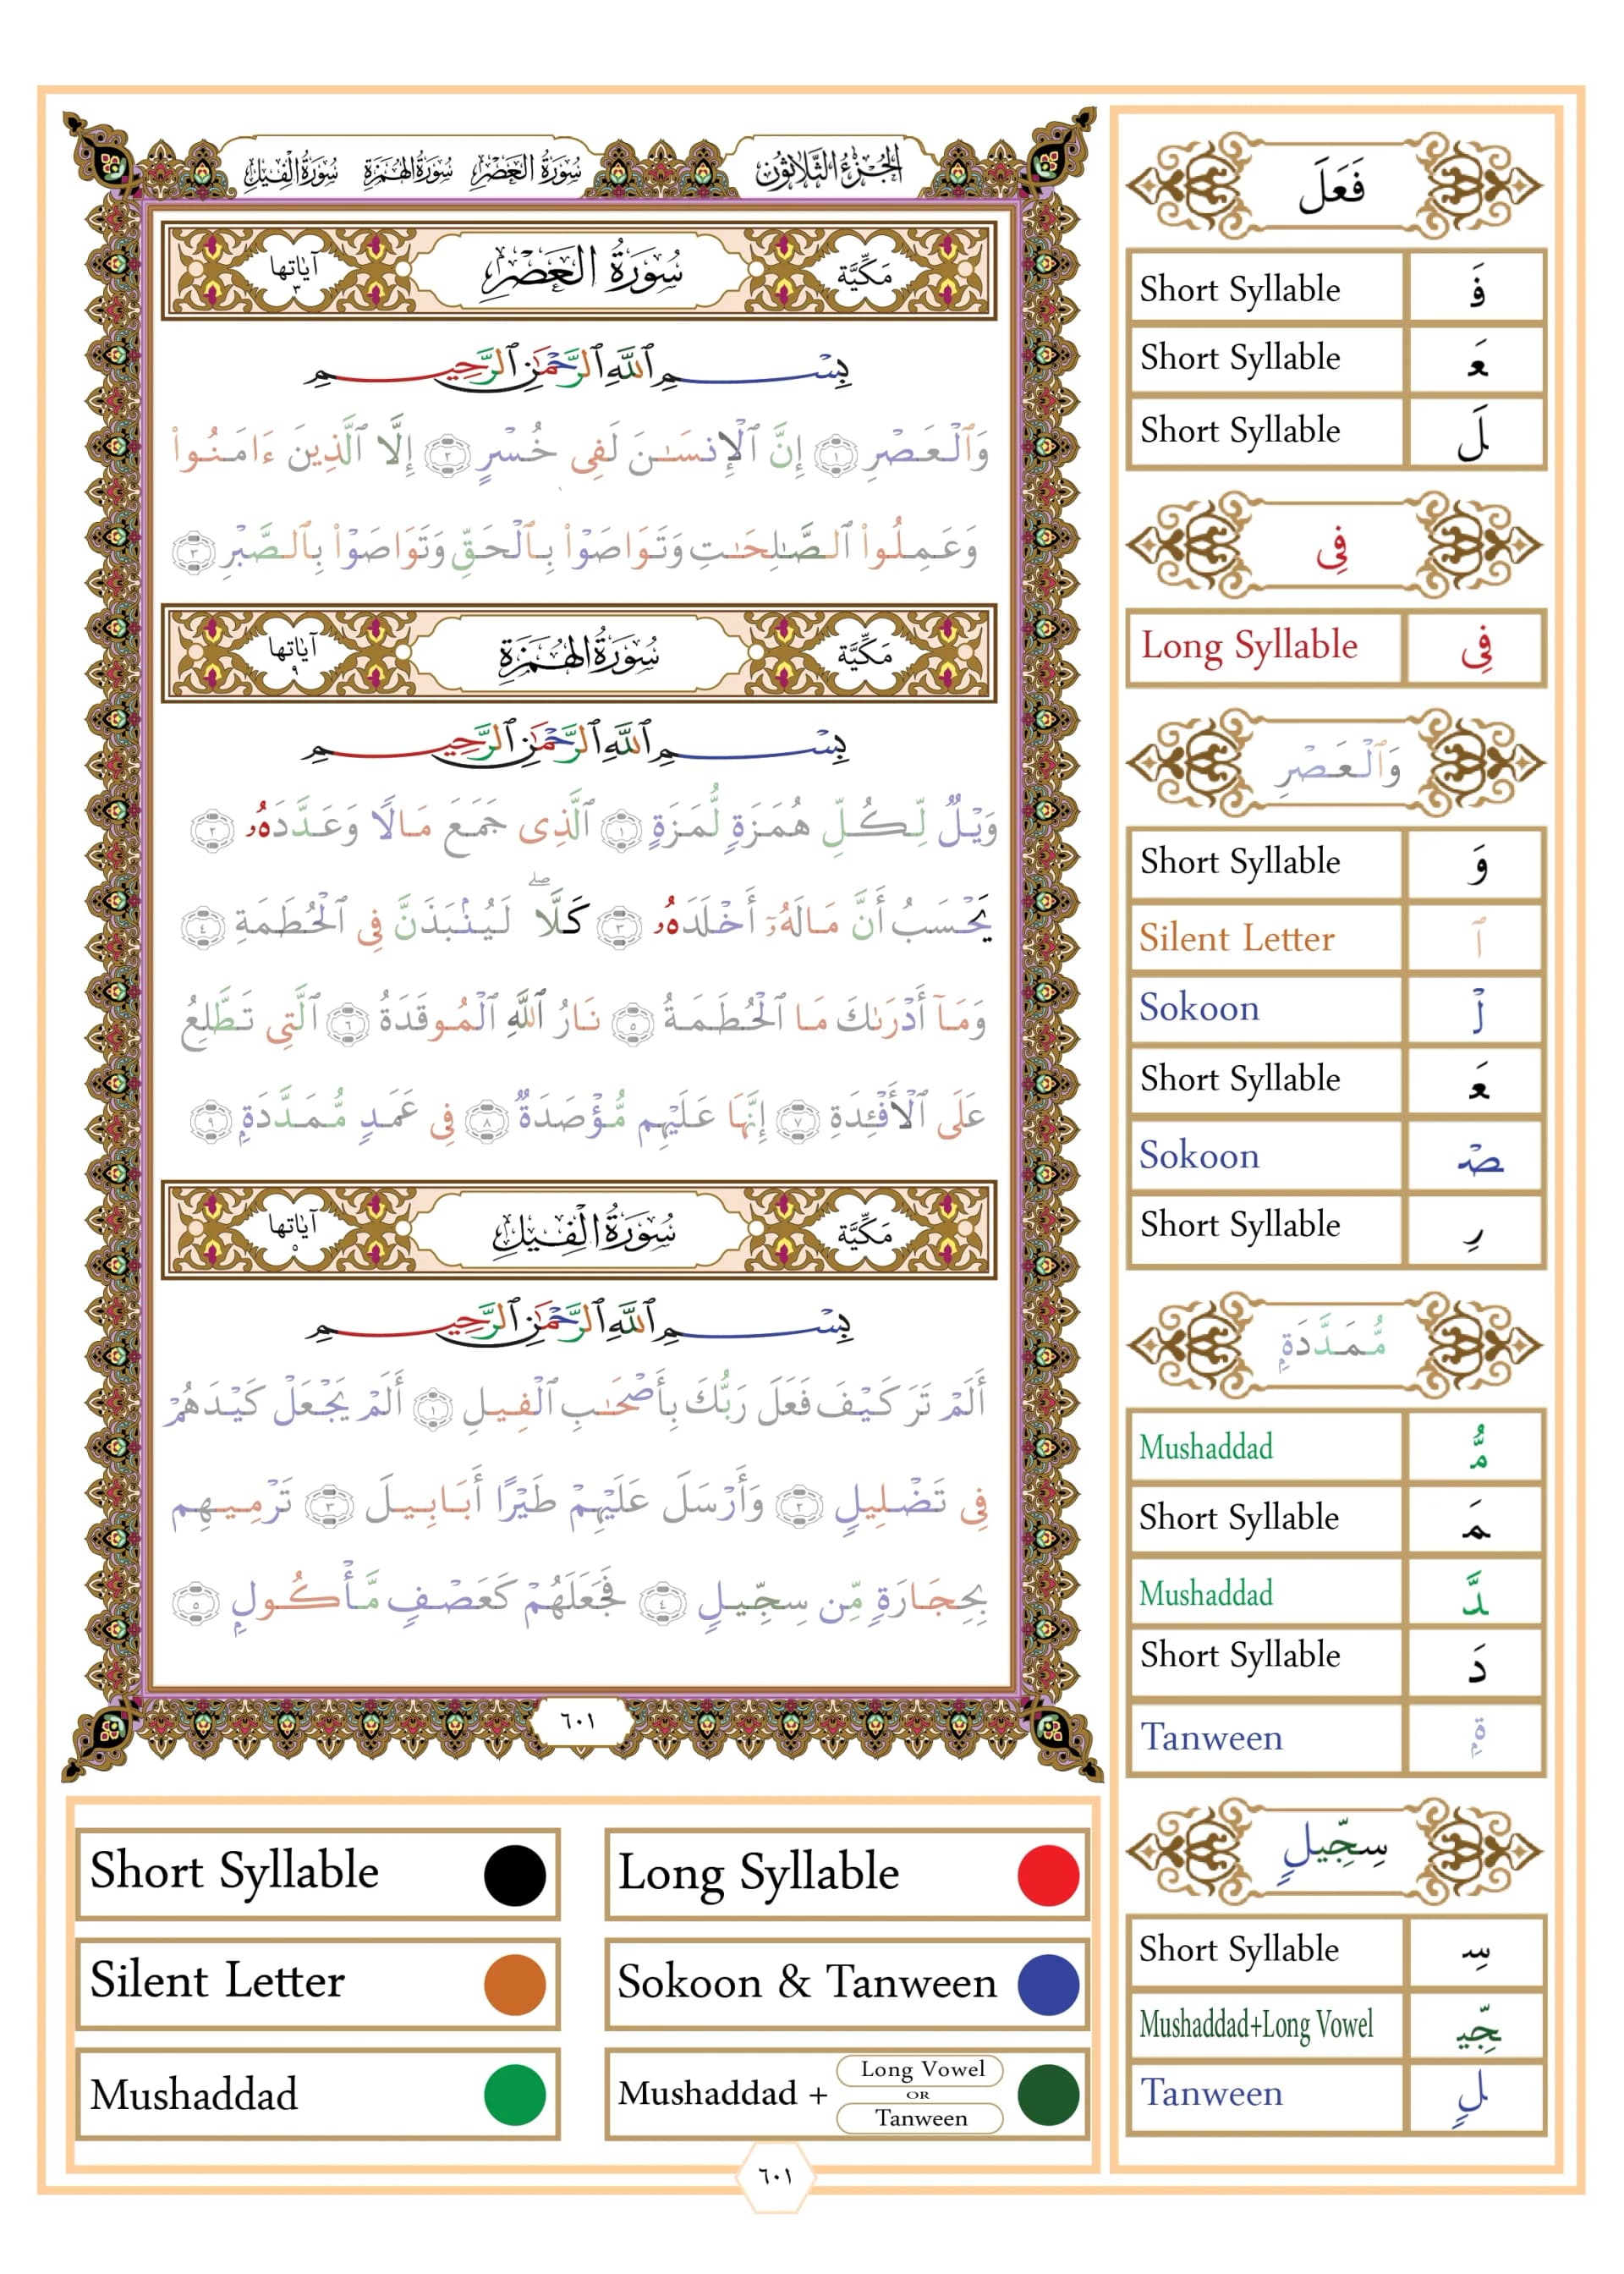 الجزء الثلاثون
سورة العصر سورة الهمزة سورة الفيل
مكية سورة العصر آياتها ٣
بِسْمِ ٱللَّهِ ٱلرَّحْمَٰنِ ٱلرَّحِيمِ
وَٱلْعَصْرِ ١ إِنَّ ٱلْإِنسَٰنَ لَفِى خُسْرٍ ٢ إِلَّا ٱلَّذِينَ ءَامَنُوا۟
وَعَمِلُوا۟ ٱلصَّٰلِحَٰتِ وَتَوَاصَوْا۟ بِٱلْحَقِّ وَتَوَاصَوْا۟ بِٱلصَّبْرِ ٣
مكية سورة الهمزة آياتها ٩
بِسْمِ ٱللَّهِ ٱلرَّحْمَٰنِ ٱلرَّحِيمِ
وَيْلٌ لِّكُلِّ هُمَزَةٍ لُّمَزَةٍ ١ ٱلَّذِى جَمَعَ مَالًا وَعَدَّدَهُۥ ٢
يَحْسَبُ أَنَّ مَالَهُۥٓ أَخْلَدَهُۥ ٣ كَلَّا ۖ لَيُنۢبَذَنَّ فِى ٱلْحُطَمَةِ ٤
وَمَآ أَدْرَىٰكَ مَا ٱلْحُطَمَةُ ٥ نَارُ ٱللَّهِ ٱلْمُوقَدَةُ ٦ ٱلَّتِى تَطَّلِعُ
عَلَى ٱلْأَفْـِٔدَةِ ٧ إِنَّهَا عَلَيْهِم مُّؤْصَدَةٌ ٨ فِى عَمَدٍ مُّمَدَّدَةٍۭ ٩
مكية سورة الفيل آياتها ٥
بِسْمِ ٱللَّهِ ٱلرَّحْمَٰنِ ٱلرَّحِيمِ
أَلَمْ تَرَ كَيْفَ فَعَلَ رَبُّكَ بِأَصْحَٰبِ ٱلْفِيلِ ١ أَلَمْ يَجْعَلْ كَيْدَهُمْ
فِى تَضْلِيلٍ ٢ وَأَرْسَلَ عَلَيْهِمْ طَيْرًا أَبَابِيلَ ٣ تَرْمِيهِم
بِحِجَارَةٍ مِّن سِجِّيلٍ ٤ فَجَعَلَهُمْ كَعَصْفٍ مَّأْكُولٍۭ ٥
٦٠١
فَعَلَ
Short Syllable فَ
Short Syllable عَ
Short Syllable لَ
فِى
Long Syllable فِى
وَٱلْعَصْرِ
Short Syllable وَ
Silent Letter ٱ
Sokoon لْ
Short Syllable عَ
Sokoon صْ
Short Syllable رِ
مُّمَدَّدَةٍۭ
Mushaddad مُّ
Short Syllable مَ
Mushaddad دَّ
Short Syllable دَ
Tanween ةٍۭ
سِجِّيلٍ
Short Syllable سِ
Mushaddad+Long Vowel جِّي
Tanween لٍ
Short Syllable
Long Syllable
Silent Letter
Sokoon & Tanween
Mushaddad
Mushaddad + Long Vowel OR Tanween
٦٠١